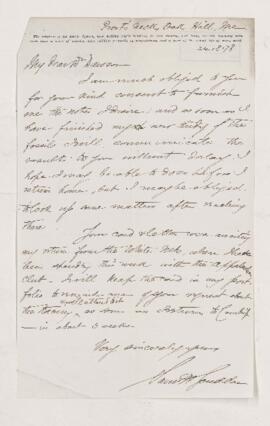 My Dear Mr Dawson
I am much obliged to you
for your kind consent to furnish
me the notes I desire and as soon as I
have finished my new study of the
fossils I will communicate the
results to you without delay. I
hope I may be able to do so before I
return home, but I may be obliged
to look up some matters after reaching
there.
Your card & letter was awaiting
my return from the White Mts, where I have
been spending this week with the Appalachian
Club. I will keep the card in my port
folio to remind me of your request about
as soon as I return to Cambridge
in about 3 weeks.
Very sincerely yours
Sam H Scudder